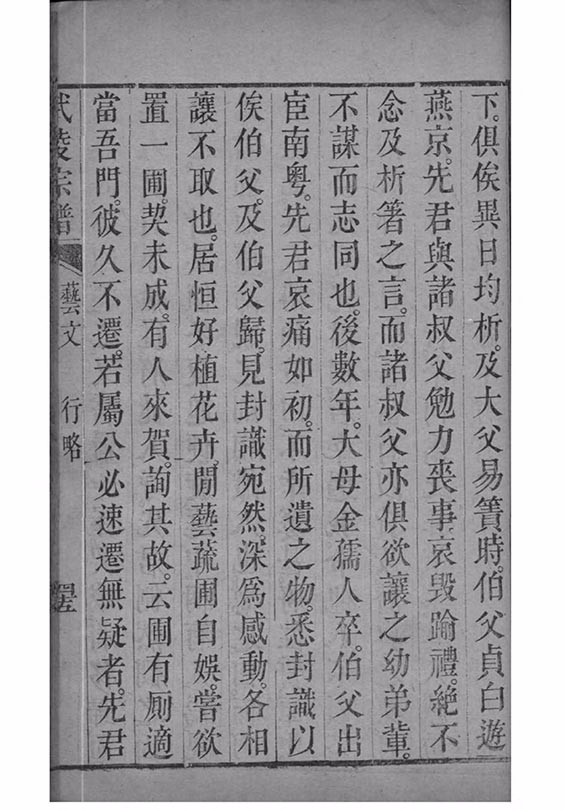 下。俱俟異日均析。及大父易簀時。伯父貞白遊
燕京。先君與諸叔父勉力喪事。哀毀踰禮。絶不
念及析箸之言。而諸叔父亦俱欲讓之幼弟輩。
不謀而志同也。後數年。大母金孺人卒。伯父出
宦南粵。先君哀痛如初。而所遺之物。悉封識以
俟伯父。及伯父歸。見封識宛然。深爲感動。各相
讓不取也。居恒好植花卉。閒藝蔬圃自娛。嘗欲
置一圃。契未成。有人來賀。詢其故。云圃有厠適
當吾門。彼久不遷。若屬公必速遷無疑者。先君
武陵宗譜 藝文 行略